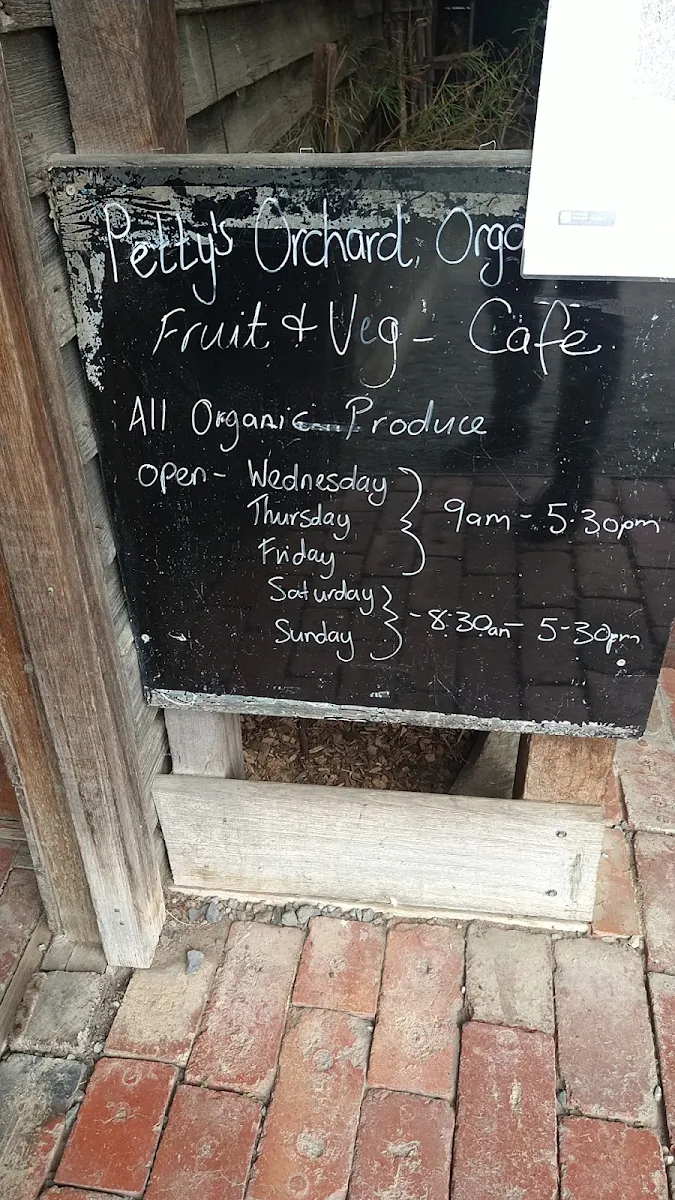 Petty's Orchard, Orga
Fruit & Veg - Cafe
All Organic Produce
Open - Wednesday
Thursday
Friday
9am - 5.30pm
Saturday
Sunday
- 8.30am - 5-30pm